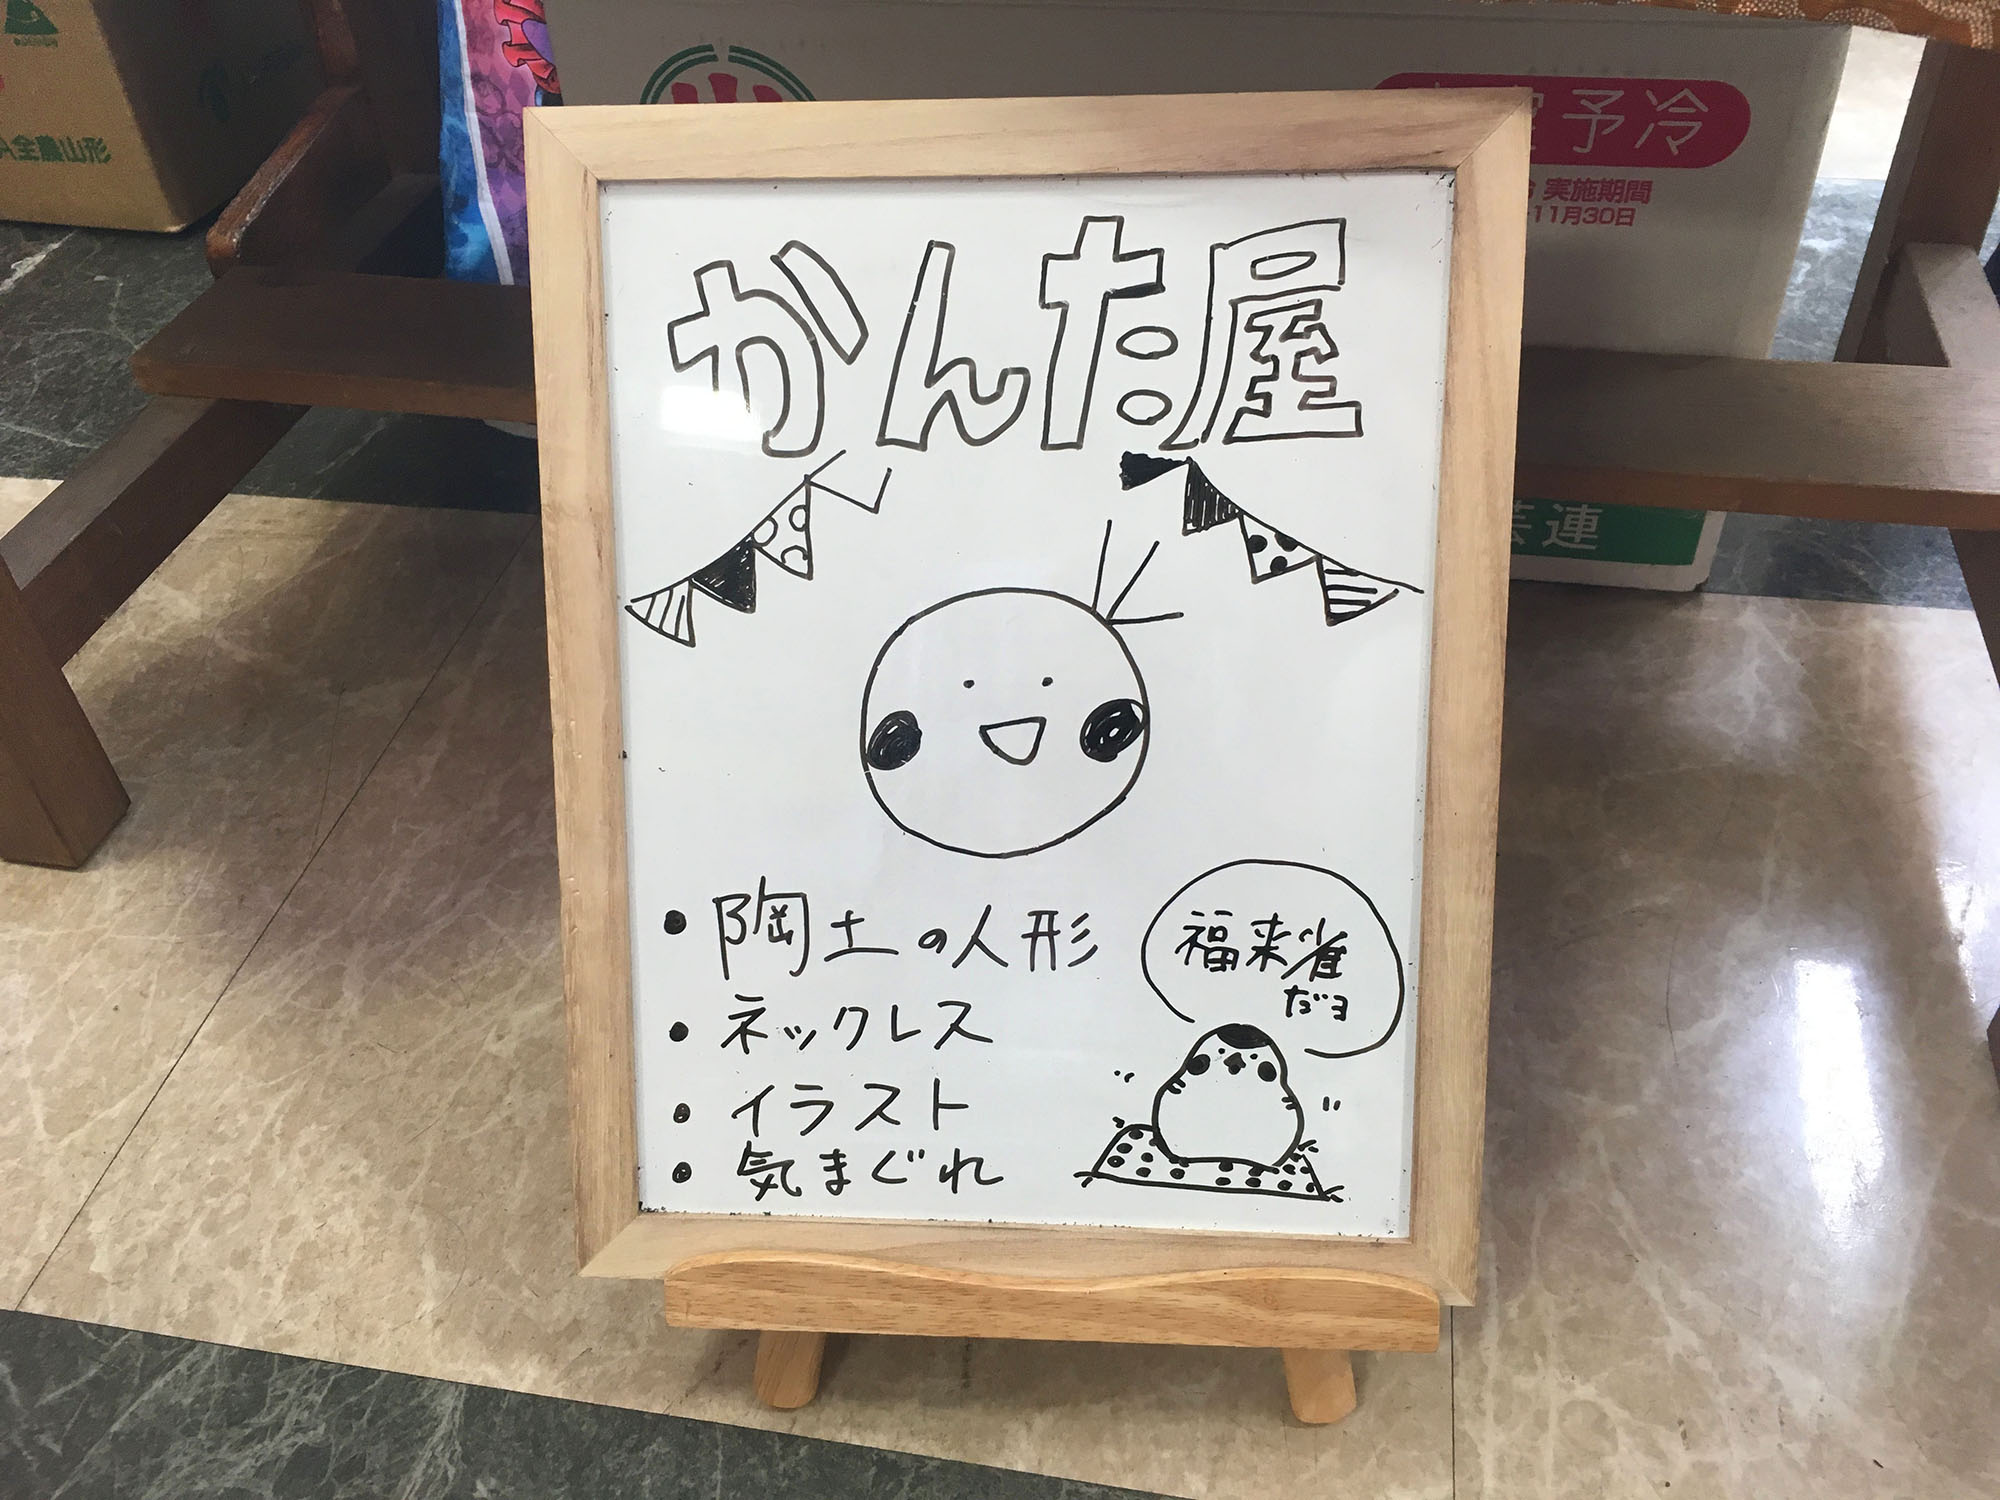 全農山形
山
予冷
実施期間
11月30日
かんた屋
連
・陶土の人形
・ネックレス
・イラスト
・気まぐれ
福来雀
だョ